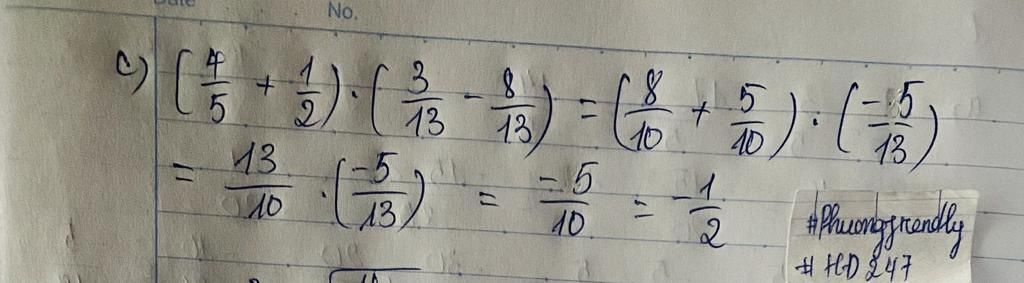 No.
c) (4/5 + 1/2) · (3/13 - 8/13) = (8/10 + 5/10) · (-5/13)
= 13/10 · (-5/13) = -5/10 = -1/2
#Phuongfriendly
# HD 247